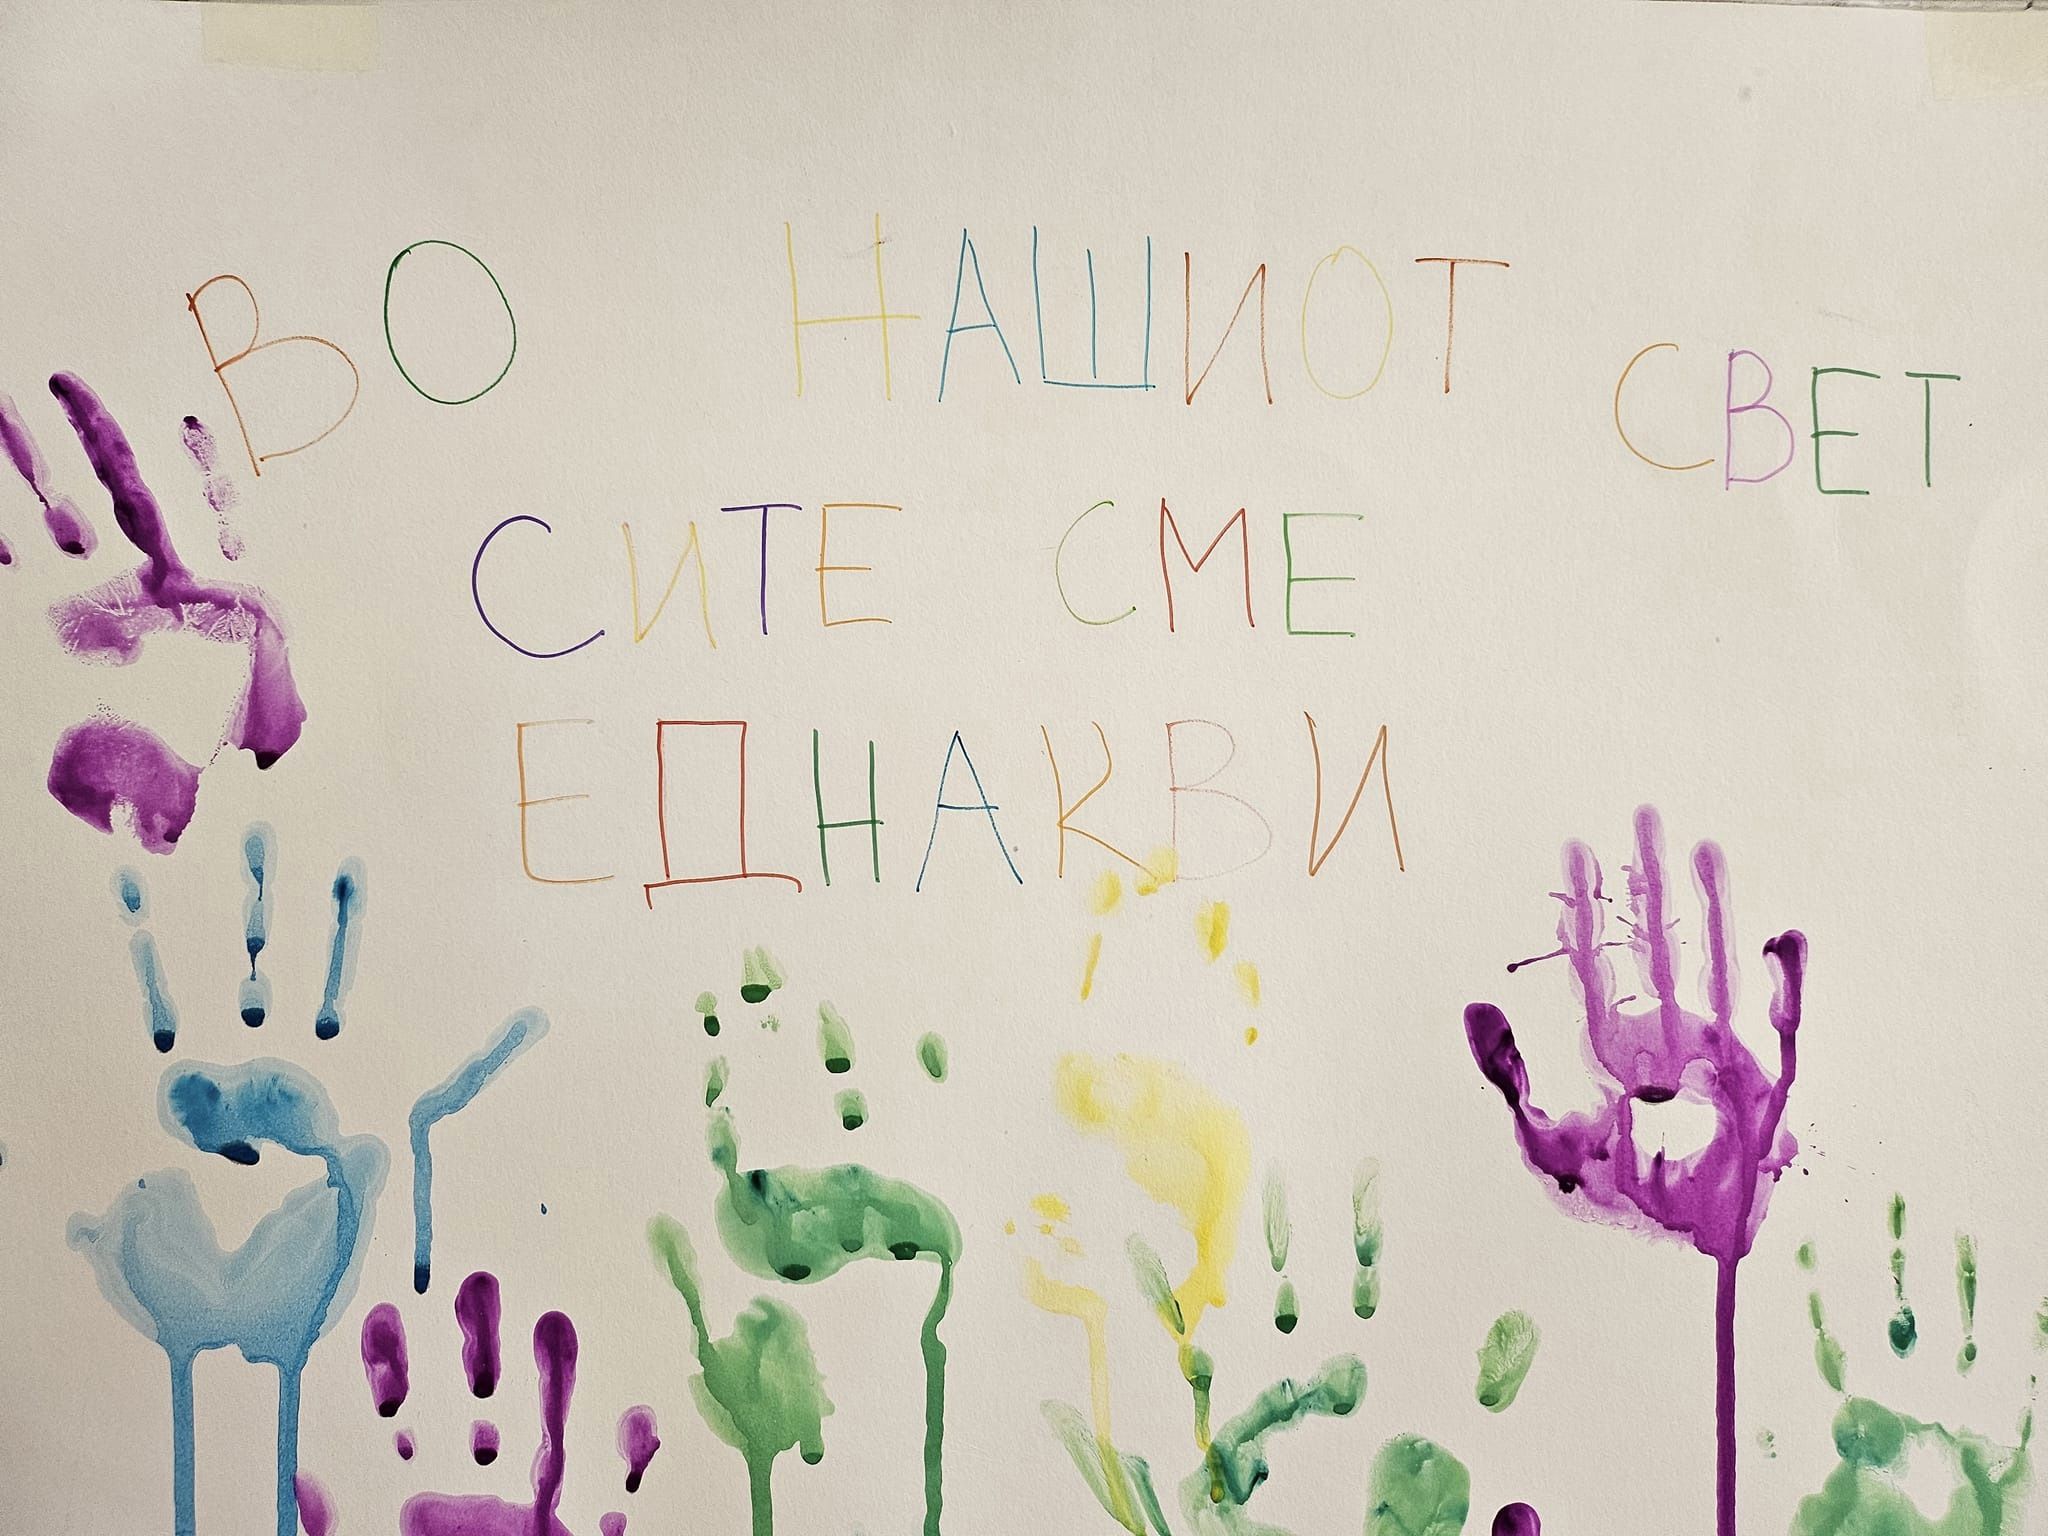 ВО НАШИОТ СВЕТ
СИТЕ СМЕ
ЕДНАКВИ